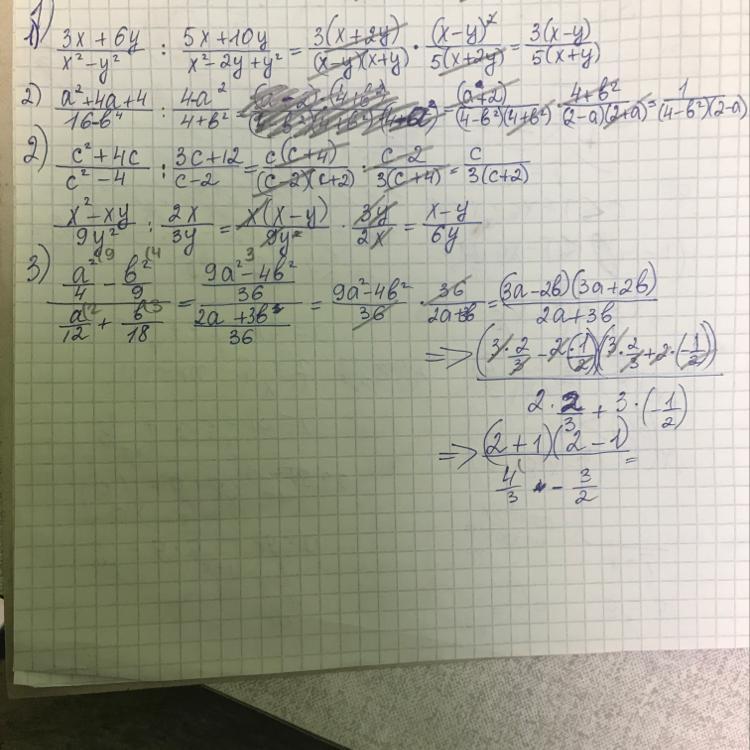 1) \frac{3x+6y}{x^2-y^2} : \frac{5x+10y}{x^2-2y+y^2} = \frac{3(x+2y)}{(x-y)(x+y)} \cdot \frac{(x-y)^2}{5(x+2y)} = \frac{3(x-y)}{5(x+y)}
2) \frac{a^2+4a+4}{16-b^4} : \frac{4-a^2}{4+b^2} = \frac{(a+2)^2}{(4-b^2)(4+b^2)} \cdot \frac{4+b^2}{(2-a)(2+a)} = \frac{1}{(4-b^2)(2-a)}
2) \frac{c^2+4c}{c^2-4} : \frac{3c+12}{c-2} = \frac{c(c+4)}{(c-2)(c+2)} \cdot \frac{c-2}{3(c+4)} = \frac{c}{3(c+2)}
\frac{x^2-xy}{9y^2} : \frac{2x}{3y} = \frac{x(x-y)}{9y^2} \cdot \frac{3y}{2x} = \frac{x-y}{6y}
3) \frac{\frac{a^2}{4} - \frac{b^2}{9}}{\frac{a}{12} + \frac{b}{18}} = \frac{\frac{9a^2-4b^2}{36}}{\frac{2a+3b}{36}} = \frac{9a^2-4b^2}{36} \cdot \frac{36}{2a+3b} = \frac{(3a-2b)(3a+2b)}{2a+3b}
=> \frac{(3 \cdot \frac{2}{3} - 2 \cdot (-\frac{1}{2}))(3 \cdot \frac{2}{3} + 2 \cdot (-\frac{1}{2}))}{2 \cdot \frac{2}{3} + 3 \cdot (-\frac{1}{2})}
=> \frac{(2+1)(2-1)}{\frac{4}{3} - \frac{3}{2}} =